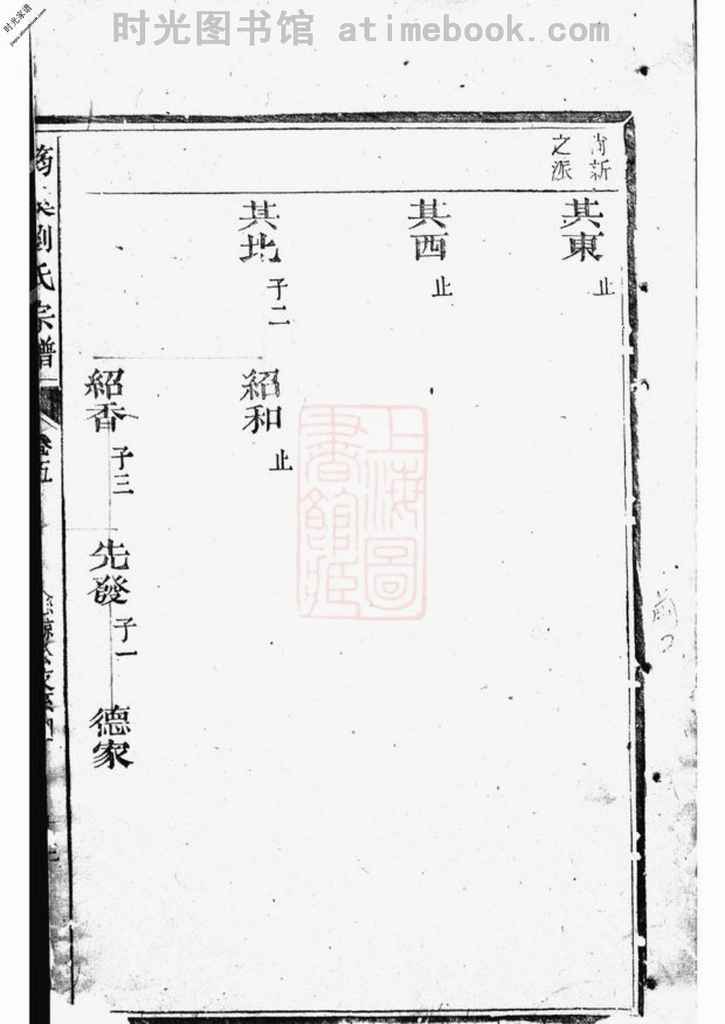 时光图书馆 atimebook.com
时光家谱
肯新
之派
其東 止
其西 止
其北 子二
紹和 止
紹香 子三
先發 子一
德家
劉氏宗譜
卷五
上海圖
書館藏